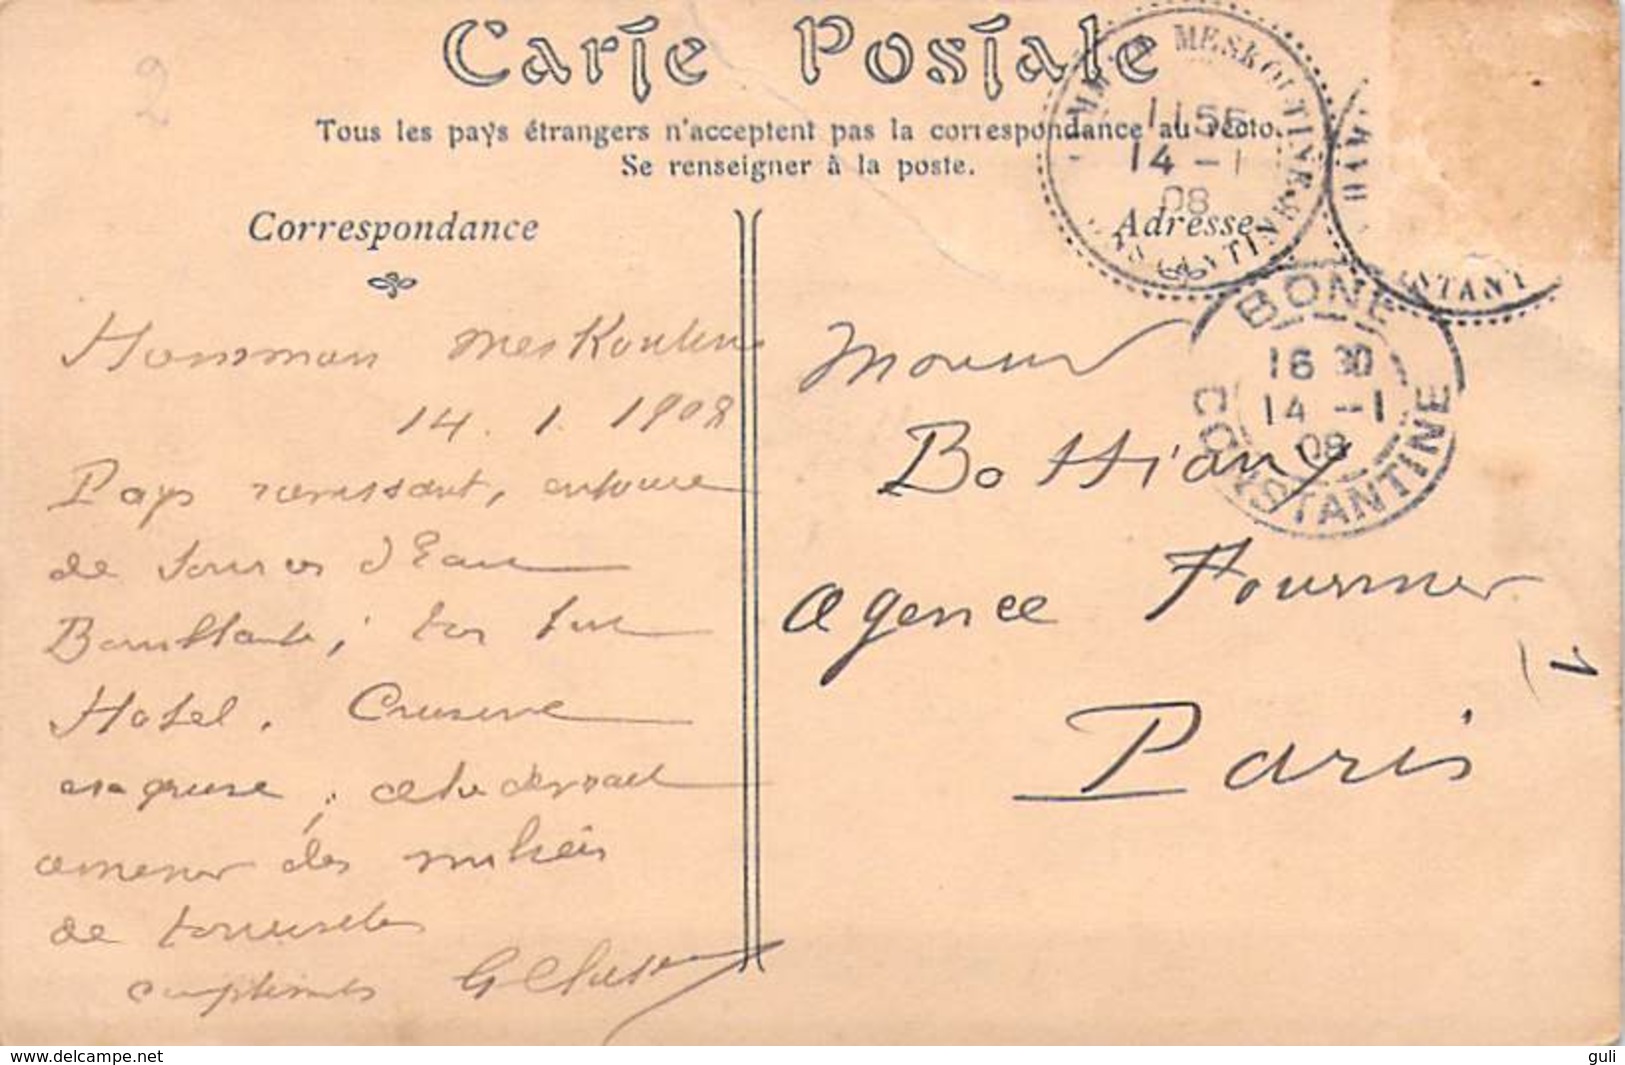 2
Carte Postale
Tous les pays étrangers n'acceptent pas la correspondance au recto.
Se renseigner à la poste.
MESKOUTINE
1155
14 - 1
08
CONSTANTINE
BONE
16 30
14 - 1
08
CONSTANTINE
Correspondance
Hammam Meskoutine
14 . 1 . 1908
Pays ravissant, entouré
de Sources d'Eau
Bouillante;
Hotel. Cuisine
exquise,
amener des milliers
de touristes
compliments
Adresse
Monsieur
Bottiany
Agence Fournier
Paris
1
www.delcampe.net
guli